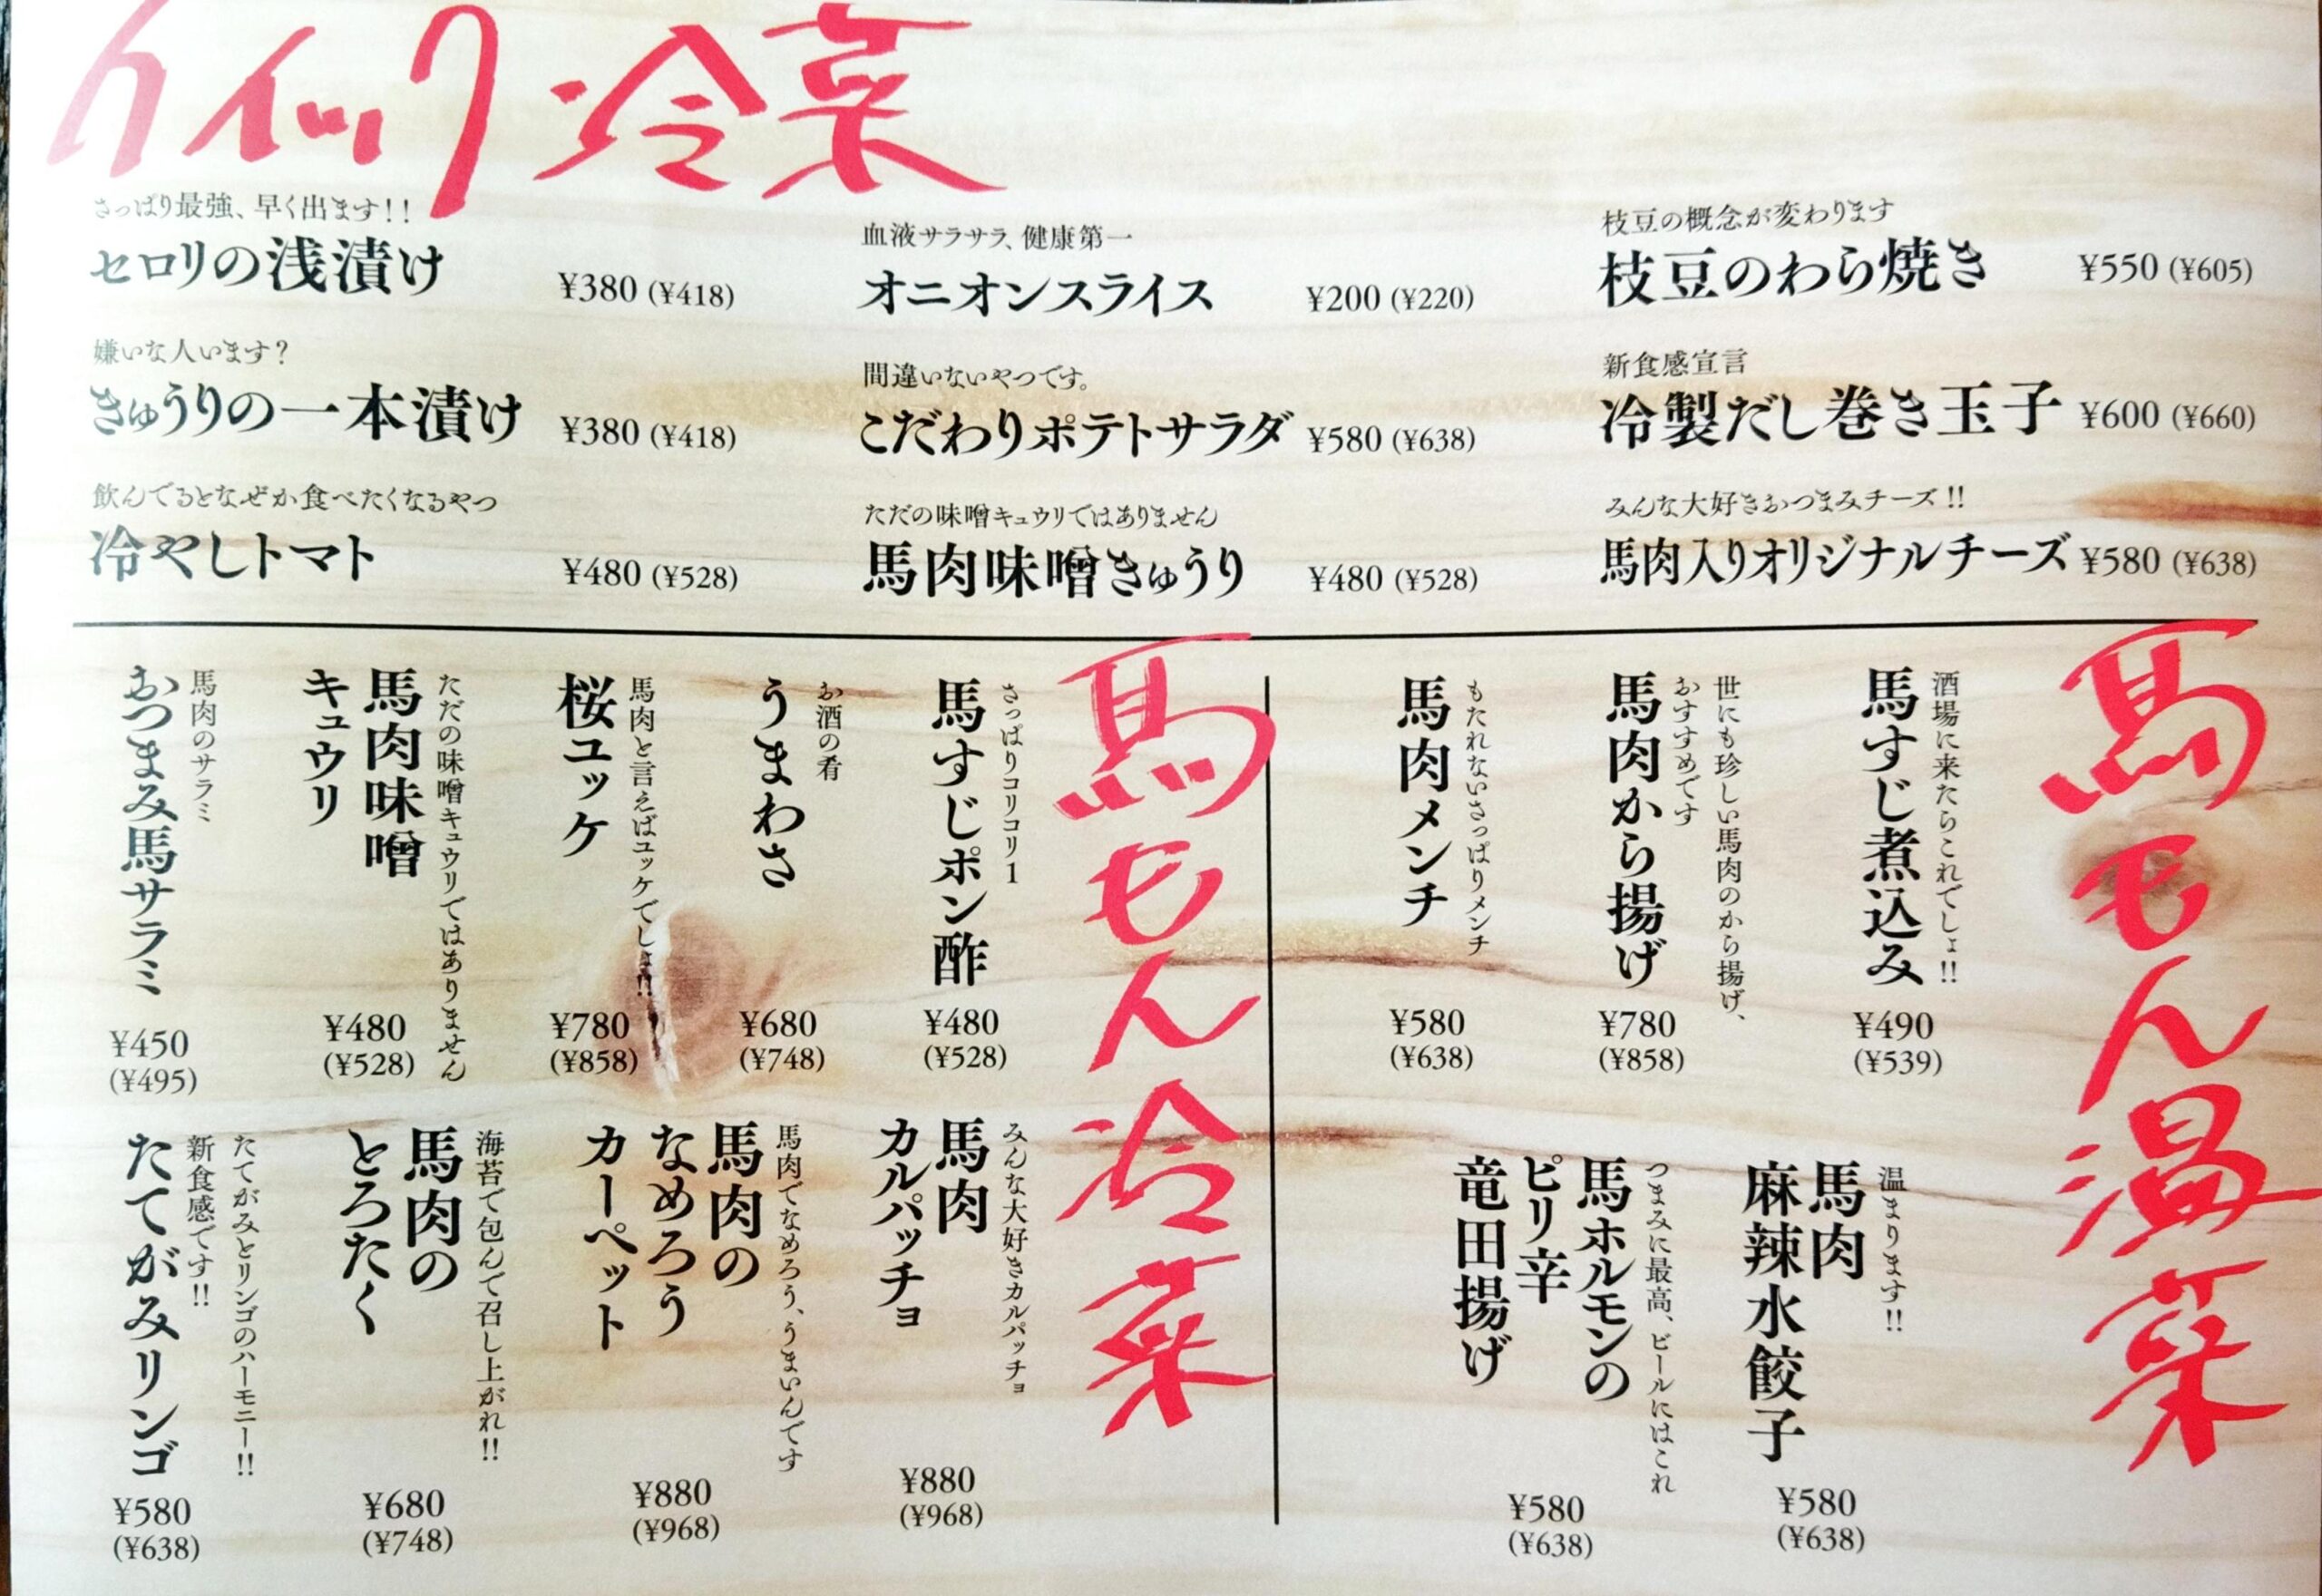 クイック冷菜
さっぱり最強、早く出ます!!
セロリの浅漬け
¥380 (¥418)
嫌いな人います?
きゅうりの一本漬け
¥380 (¥418)
飲んでるとなぜか食べたくなるやつ
冷やしトマト
¥480 (¥528)
血液サラサラ、健康第一
オニオンスライス
¥200 (¥220)
間違いないやつです。
こだわりポテトサラダ
¥580 (¥638)
ただの味噌キュウリではありません
馬肉味噌きゅうり
¥480 (¥528)
枝豆の概念が変わります
枝豆のわら焼き
¥550 (¥605)
新食感宣言
冷製だし巻き玉子
¥600 (¥660)
みんな大好きおつまみチーズ!!
馬肉入りオリジナルチーズ
¥580 (¥638)
馬もん温菜
酒場に来たらこれでしょ!!
馬すじ煮込み
¥490
(¥539)
世にも珍しい馬肉のから揚げ、
おすすめです
馬肉から揚げ
¥780
(¥858)
もたれないさっぱりメンチ
馬肉メンチ
¥580
(¥638)
温まります!!
馬肉
麻辣水餃子
¥580
(¥638)
つまみに最高、ビールにはこれ
馬ホルモンの
ピリ辛
竜田揚げ
¥580
(¥638)
馬もん冷菜
さっぱりコリコリ1
馬すじポン酢
¥480
(¥528)
お酒の肴
うまわさ
¥680
(¥748)
馬肉と言えばユッケでしょ!!
桜ユッケ
¥780
(¥858)
ただの味噌キュウリではありません
馬肉味噌
キュウリ
¥480
(¥528)
馬肉のサラミ
おつまみ馬サラミ
¥450
(¥495)
みんな大好きカルパッチョ
馬肉
カルパッチョ
¥880
(¥968)
馬肉でなめろう、うまいんです
馬肉の
なめろう
カーペット
¥880
(¥968)
海苔で包んで召し上がれ!!
馬肉の
とろたく
¥680
(¥748)
たてがみとリンゴのハーモニー!!
新食感です!!
たてがみリンゴ
¥580
(¥638)